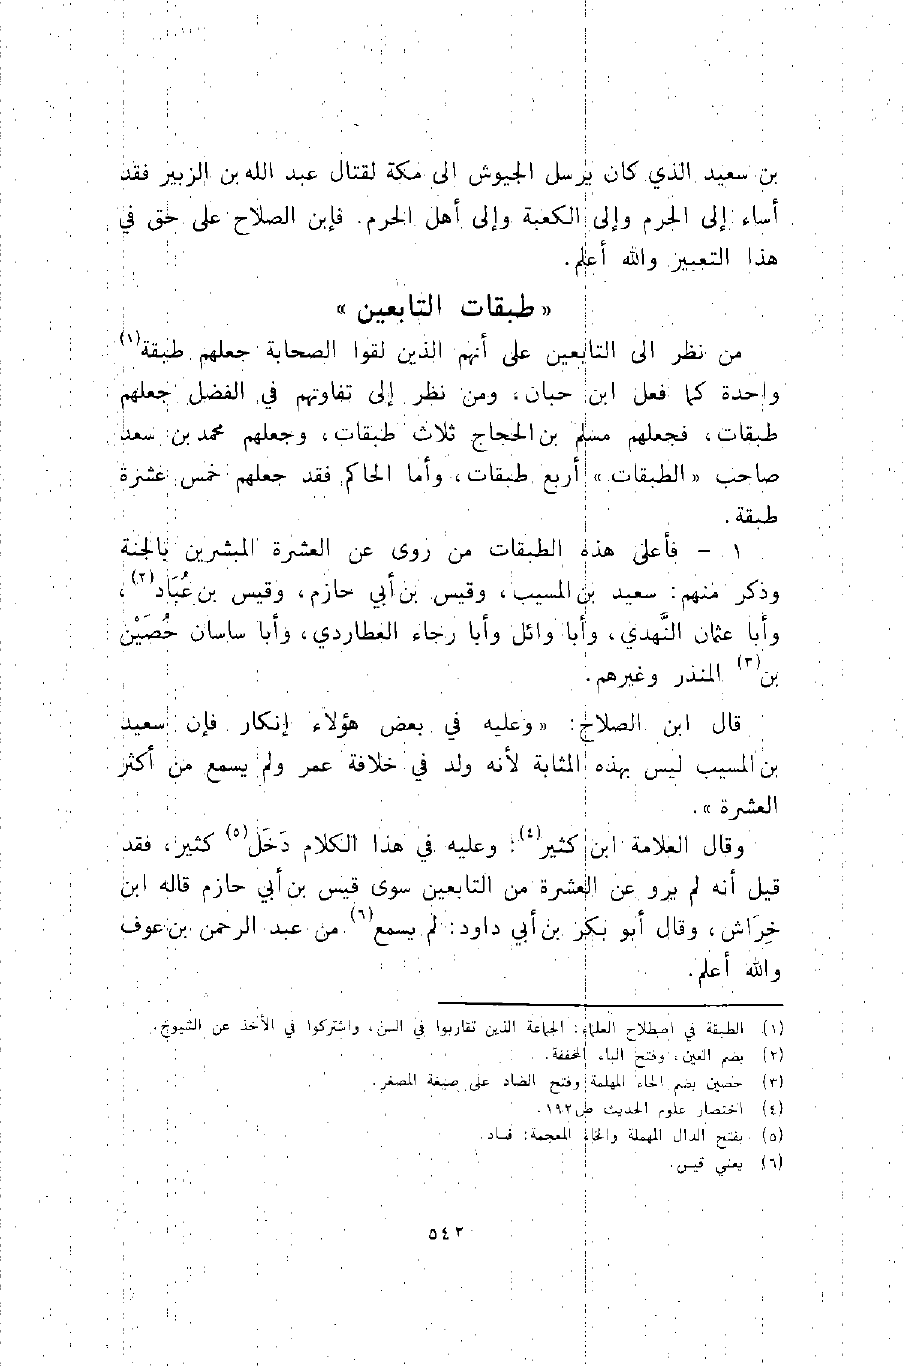 بن سعيد الذي كان يرسل الجيوش الى مكة لقتال عبد الله بن الزبير فقد
أساء إلى الحرم وإلى الكعبة وإلى أهل الحرم. فإبن الصلاح على حق في
هذا التعبير والله أعلم.
« طبقات التابعين »
من نظر الى التابعين على أنهم الذين لقوا الصحابة جعلهم طبقة(١)
واحدة كما فعل ابن حبان، ومن نظر إلى تفاوتهم في الفضل جعلهم
طبقات، فجعلهم مسلم بن الحجاج ثلاث طبقات، وجعلهم محمد بن سعد
صاحب « الطبقات » أربع طبقات، وأما الحاكم فقد جعلهم خمس عشرة
طبقة.
١ - فأعلى هذه الطبقات من روى عن العشرة المبشرين بالجنة
وذكر منهم: سعيد بن المسيب، وقيس بن أبي حازم، وقيس بن عُبَاد(٢)،
وأبا عثمان النَّهدي، وأبا وائل وأبا رجاء العطاردي، وأبا ساسان حُصَيْن
بن(٣) المنذر وغيرهم.
قال ابن الصلاح: «وعليه في بعض هؤلاء إنكار فإن سعيد
بن المسيب ليس بهذه المثابة لأنه ولد في خلافة عمر ولم يسمع من أكثر
العشرة ».
وقال العلامة ابن كثير(٤): وعليه في هذا الكلام دَخَل(٥) كثير، فقد
قيل أنه لم يرو عن العشرة من التابعين سوى قيس بن أبي حازم قاله ابن
خِرَاش، وقال أبو بكر بن أبي داود: لم يسمع(٦) من عبد الرحمن بن عوف
والله أعلم.
(١) الطبقة في اصطلاح العلماء: الجماعة الذين تقاربوا في السن، واشتركوا في الأخذ عن الشيوخ.
(٢) بضم العين، وفتح الباء المخففة.
(٣) حصين بضم الحاء المهلمة وفتح الضاد على صيغة المصغر.
(٤) اختصار علوم الحديث ص١٩٢.
(٥) بفتح الدال المهملة والخاء المعجمة: فساد.
(٦) يعني قيس.
٥٤٢